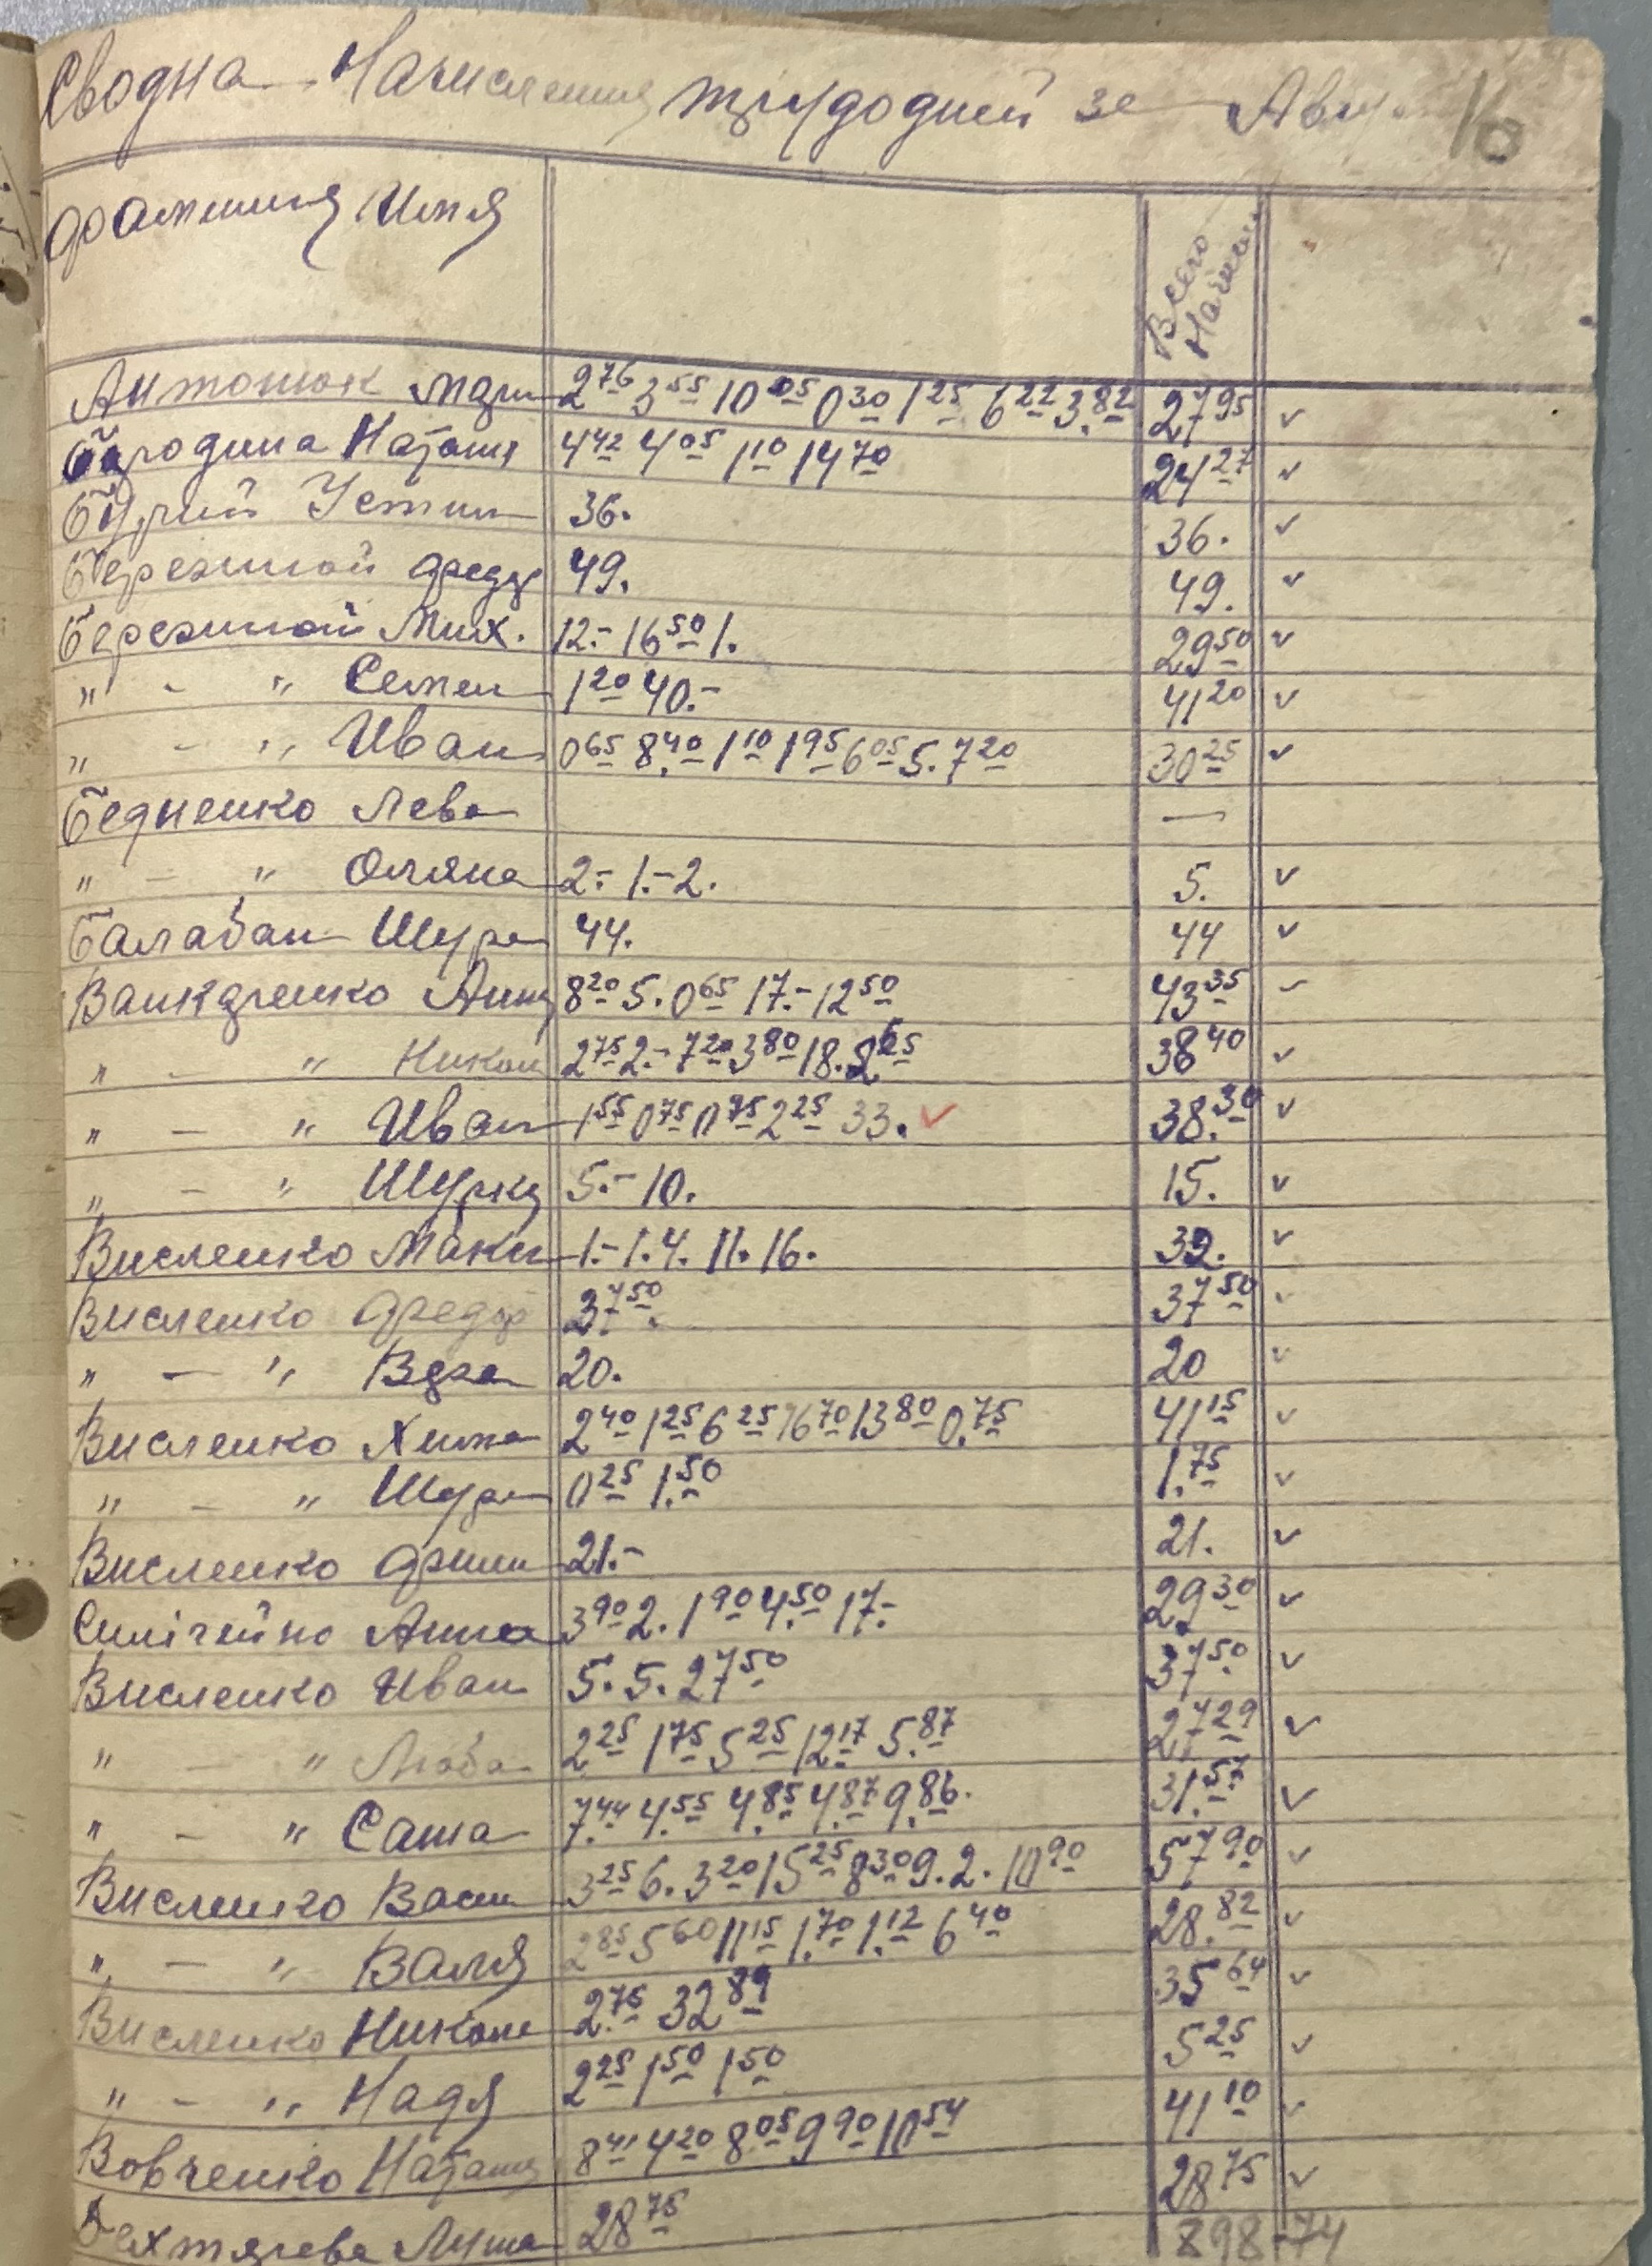 Сводна Начисления трудодней за Авгу 16
Фамилия Имя Всего Начисл
Антонюк Мари 2 76 3 55 10 05 0 30 1 25 6 22 3.82 27 95 ✓
Бородина Наташ 4 42 4 05 1 10 14 70 24 27 ✓
Бурий Устин 36. 36. ✓
Бережной Федор 49. 49. ✓
Бережной Мих. 12.- 16 50 1. 29 50 ✓
" - " Семен 1 20 40.- 41 20 ✓
" - " Иван 0 65 8.40 1 10 1 95 6 05 5. 7 20 30 25 ✓
Бедненко Лева —
" - " Оляна 2.- 1.- 2. 5. ✓
Балабан Шура 44. 44 ✓
Анна 8 20 5. 0 65 17.- 12 50 43 35 ✓
" - " Никол 2 75 2.- 7 20 3 80 18. 2 65 38 40 ✓
" - " Иван 1 55 0 75 0 75 2 25 33. ✓ 38.30 ✓
" - " Шурка 5.- 10. 15. ✓
Висленко Макси 1.- 1. 4. 11. 16. 32. ✓
Висленко Федор 37 50. 37 50 ✓
" - " Вера 20. 20 ✓
Висленко Хима 2 40 1 25 6 25 16 70 13 80 0.75 41 15 ✓
" - " Шура 0 25 1.50 1.75 ✓
Висленко 21.- 21. ✓
Анна 3 90 2. 1 90 4.50 17.- 29 30 ✓
Висленко Иван 5. 5. 27 50 37 50 ✓
" - " Люба 2 25 1 75 5 25 12 17 5.87 27 29 ✓
" - " Саша 7.44 4.55 4.85 4.87 9.86. 31.57 ✓
Висленко Васи 3 25 6. 3 20 15 25 8 30 9. 2. 10 90 57 90 ✓
" - " Валя 2 85 5 60 11 15 1.70 1.12 6 40 28.82 ✓
Висленко Никола 2.75 32 89 35 64 ✓
" - " Надя 2 25 1 50 1 50 5 25 ✓
Вовченко Наташа 8 41 4 20 8 05 9 90 10 54 41 10 ✓
Луша 28 75 28 75 ✓
898-74